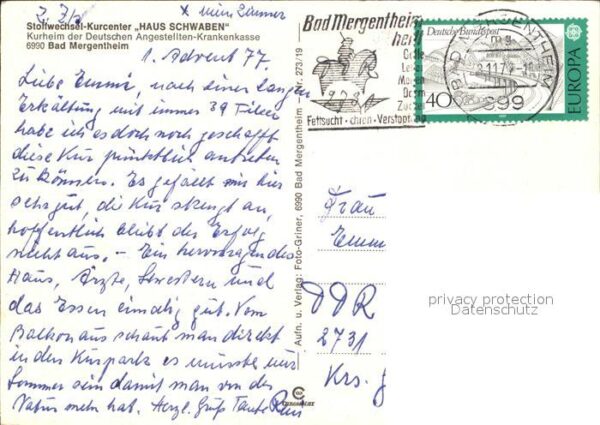 x mein Zimmer
Stoffwechsel-Kurcenter „HAUS SCHWABEN"
Kurheim der Deutschen Angestellten-Krankenkasse
6990 Bad Mergentheim
1. Advent 77.
Liebe Emmi, nach einer langen
Erkältung mit immer 39 Fieber
habe ich es doch noch geschafft
diese Kur pünktlich antreten
zu können. Es gefällt mir hier
sehr gut, die Kur strengt an,
hoffentlich bleibt der Erfolg
nicht aus. – Ein hervorragendes
Haus, Ärzte, Schwestern und
das Essen einmalig gut. Vom
Balkon aus schaut man direkt
in den Kurpark es müsste nur
Sommer sein damit man von der
Natur mehr hat. Herzl. Grüße Tante
Aufn. u. Verlag: Foto-Griner, 6990 Bad Mergentheim – Nr. 273/19
Bad Mergentheim
heilt
Galle
Leber
Magen
Darm
Zucker
Fettsucht
Verstopfung
Deutsche Bundespost
40
EUROPA
BAD MERGENTHEIM
699
Frau
Emm
DDR
2731
Krs. g
privacy protection
Datenschutz